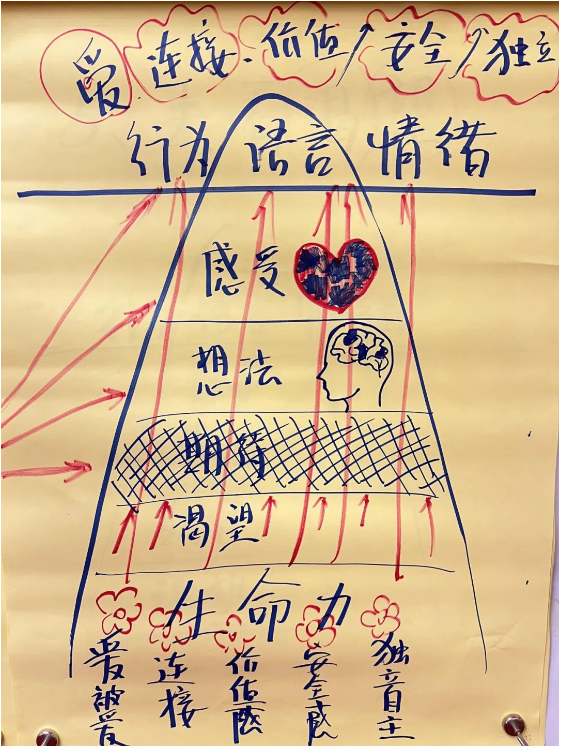 爱.连接.价值/安全/独立
行为 语言 情绪
感受
想法
期待
渴望
生命力
爱被爱
连接
价值感
安全感
独立自主